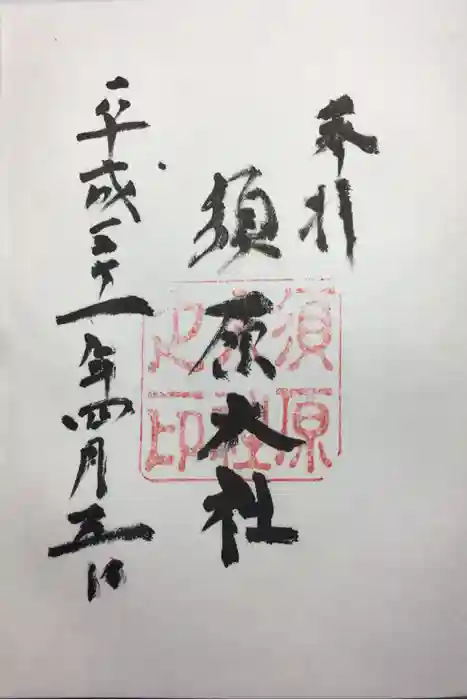 奉拝
須原大社
須原大社之印
平成三十一年四月五日